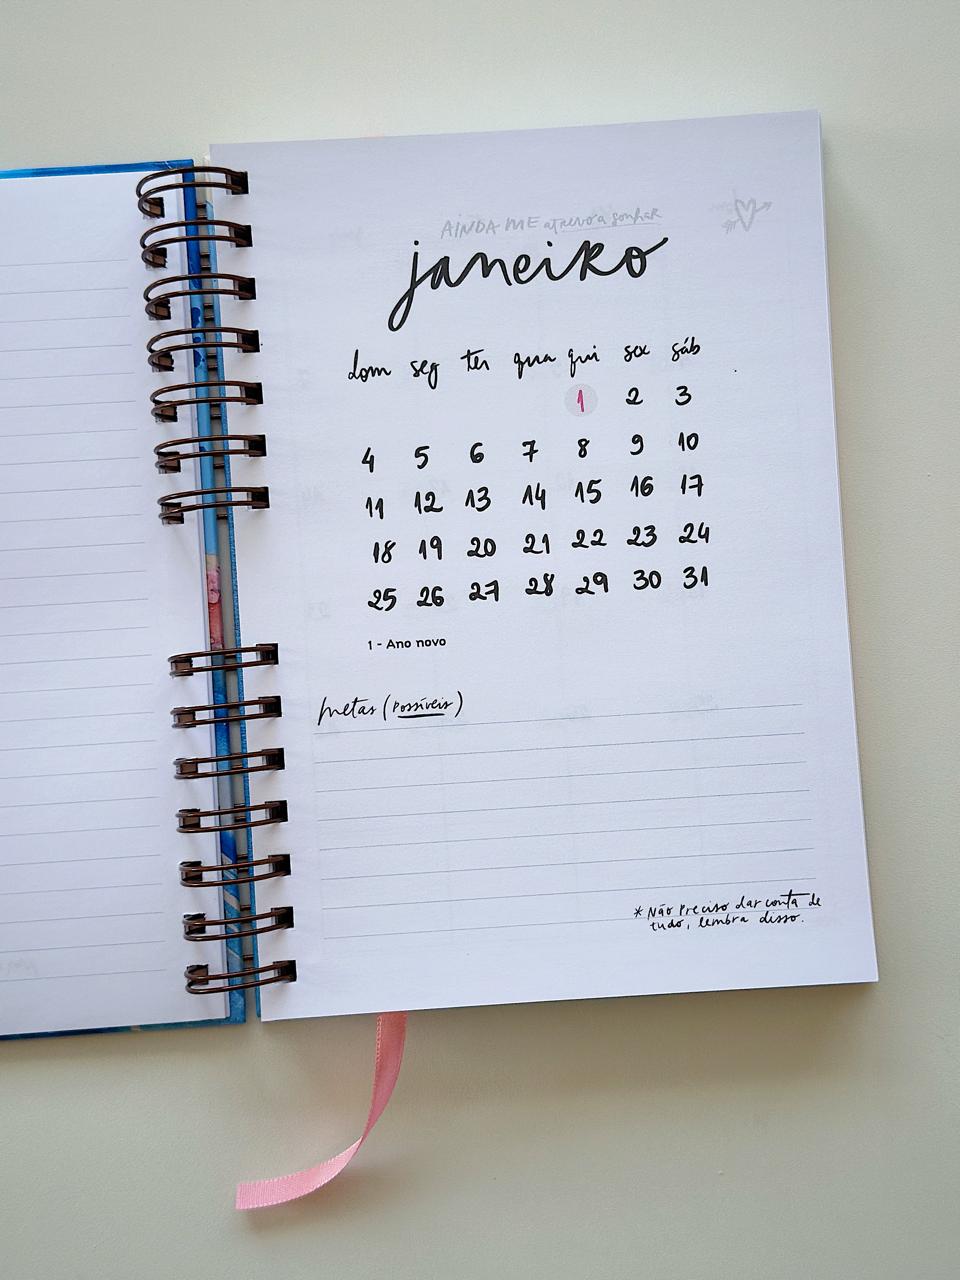 AINDA ME atrevo a sonhar
janeiro
dom seg ter qua qui sex sáb
1 2 3
4 5 6 7 8 9 10
11 12 13 14 15 16 17
18 19 20 21 22 23 24
25 26 27 28 29 30 31
1 - Ano novo
metas (possíveis)
* Não preciso dar conta de
tudo, lembra disso.